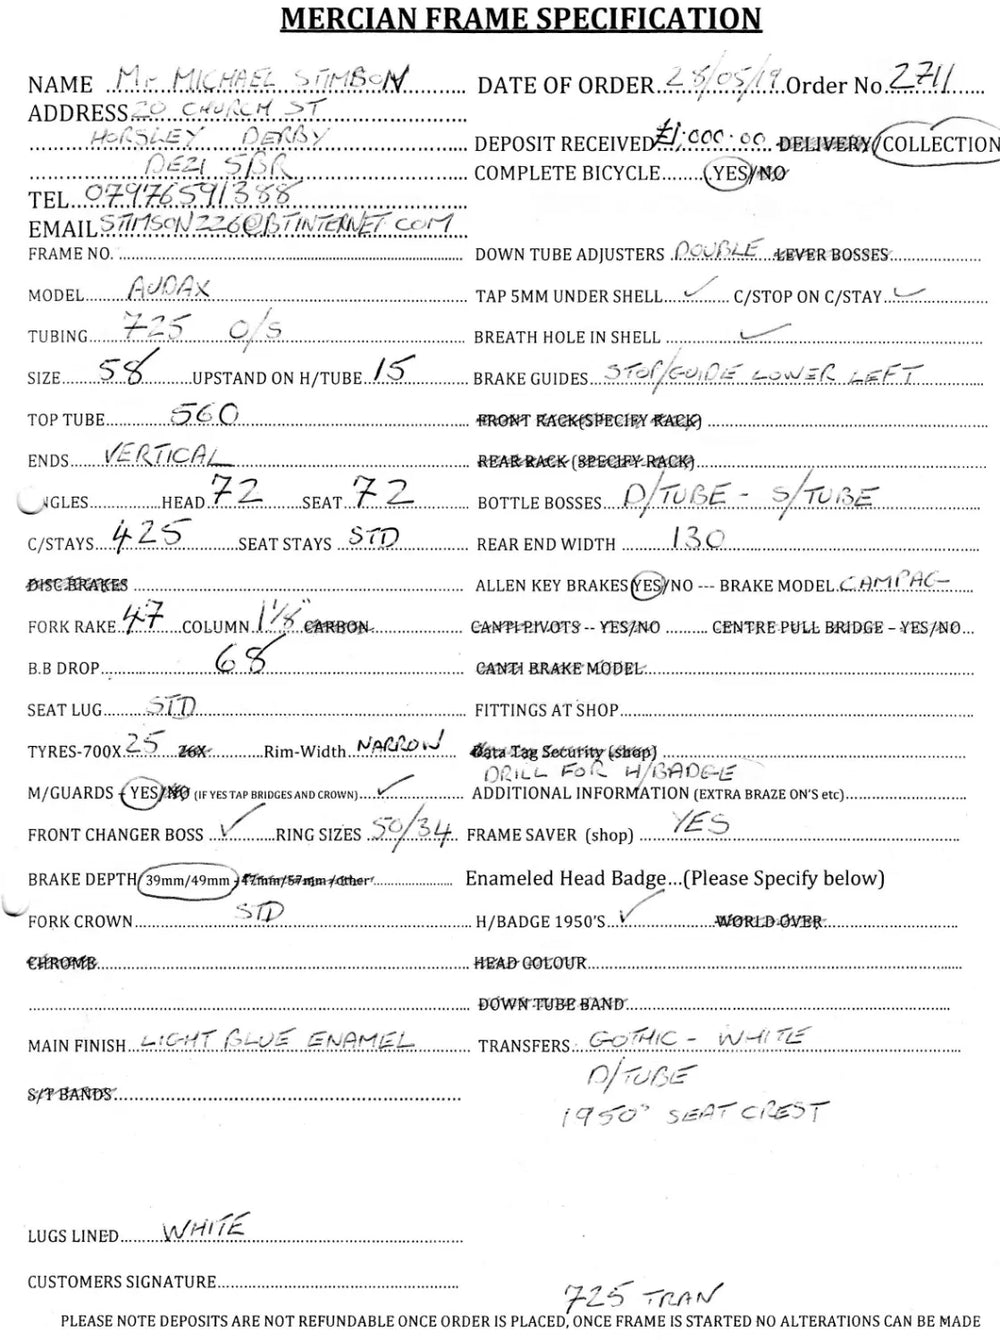 MERCIAN FRAME SPECIFICATION
NAME Mr MICHAEL STIMSON DATE OF ORDER 28/05/19 Order No. 2711
ADDRESS 20 CHURCH ST
HORSLEY DERBY DEPOSIT RECEIVED £1,000.00 DELIVERY/COLLECTION
DE21 5BR COMPLETE BICYCLE........(YES/NO
TEL...07976591388
EMAIL STIMSON226@BTINTERNET.COM
FRAME NO. DOWN TUBE ADJUSTERS DOUBLE LEVER BOSSES
MODEL AUDAX TAP 5MM UNDER SHELL ✓ C/STOP ON C/STAY ✓
TUBING 725 O/S BREATH HOLE IN SHELL ✓
SIZE 58 UPSTAND ON H/TUBE 15 BRAKE GUIDES STOP/GUIDE LOWER LEFT
TOP TUBE 560 FRONT RACK(SPECIFY RACK)
ENDS VERTICAL REAR RACK (SPECIFY RACK)
NGLES HEAD 72 SEAT 72 BOTTLE BOSSES D/TUBE - S/TUBE
C/STAYS 425 SEAT STAYS STD REAR END WIDTH 130
DISC BRAKES ALLEN KEY BRAKES YES/NO --- BRAKE MODEL CAMPAG-
FORK RAKE 47 COLUMN 1⅛" CARBON CANTI PIVOTS -- YES/NO CENTRE PULL BRIDGE – YES/NO
B.B DROP 68 CANTI BRAKE MODEL
SEAT LUG STD FITTINGS AT SHOP
TYRES-700X 25 26X Rim-Width NARROW Data Tag Security (shop)
DRILL FOR H/BADGE
M/GUARDS - YES/NO (IF YES TAP BRIDGES AND CROWN) ✓ ADDITIONAL INFORMATION (EXTRA BRAZE ON'S etc)
FRONT CHANGER BOSS ✓ RING SIZES 50/34 FRAME SAVER (shop) YES
BRAKE DEPTH 39mm/49mm - 47mm/57mm /other Enameled Head Badge...(Please Specify below)
FORK CROWN STD H/BADGE 1950'S ✓ WORLD OVER
CHROME HEAD COLOUR
DOWN TUBE BAND
MAIN FINISH LIGHT BLUE ENAMEL TRANSFERS GOTHIC - WHITE
D/TUBE
S/T BANDS
1950s SEAT CREST
LUGS LINED WHITE
CUSTOMERS SIGNATURE
725 TRAN
PLEASE NOTE DEPOSITS ARE NOT REFUNDABLE ONCE ORDER IS PLACED, ONCE FRAME IS STARTED NO ALTERATIONS CAN BE MADE